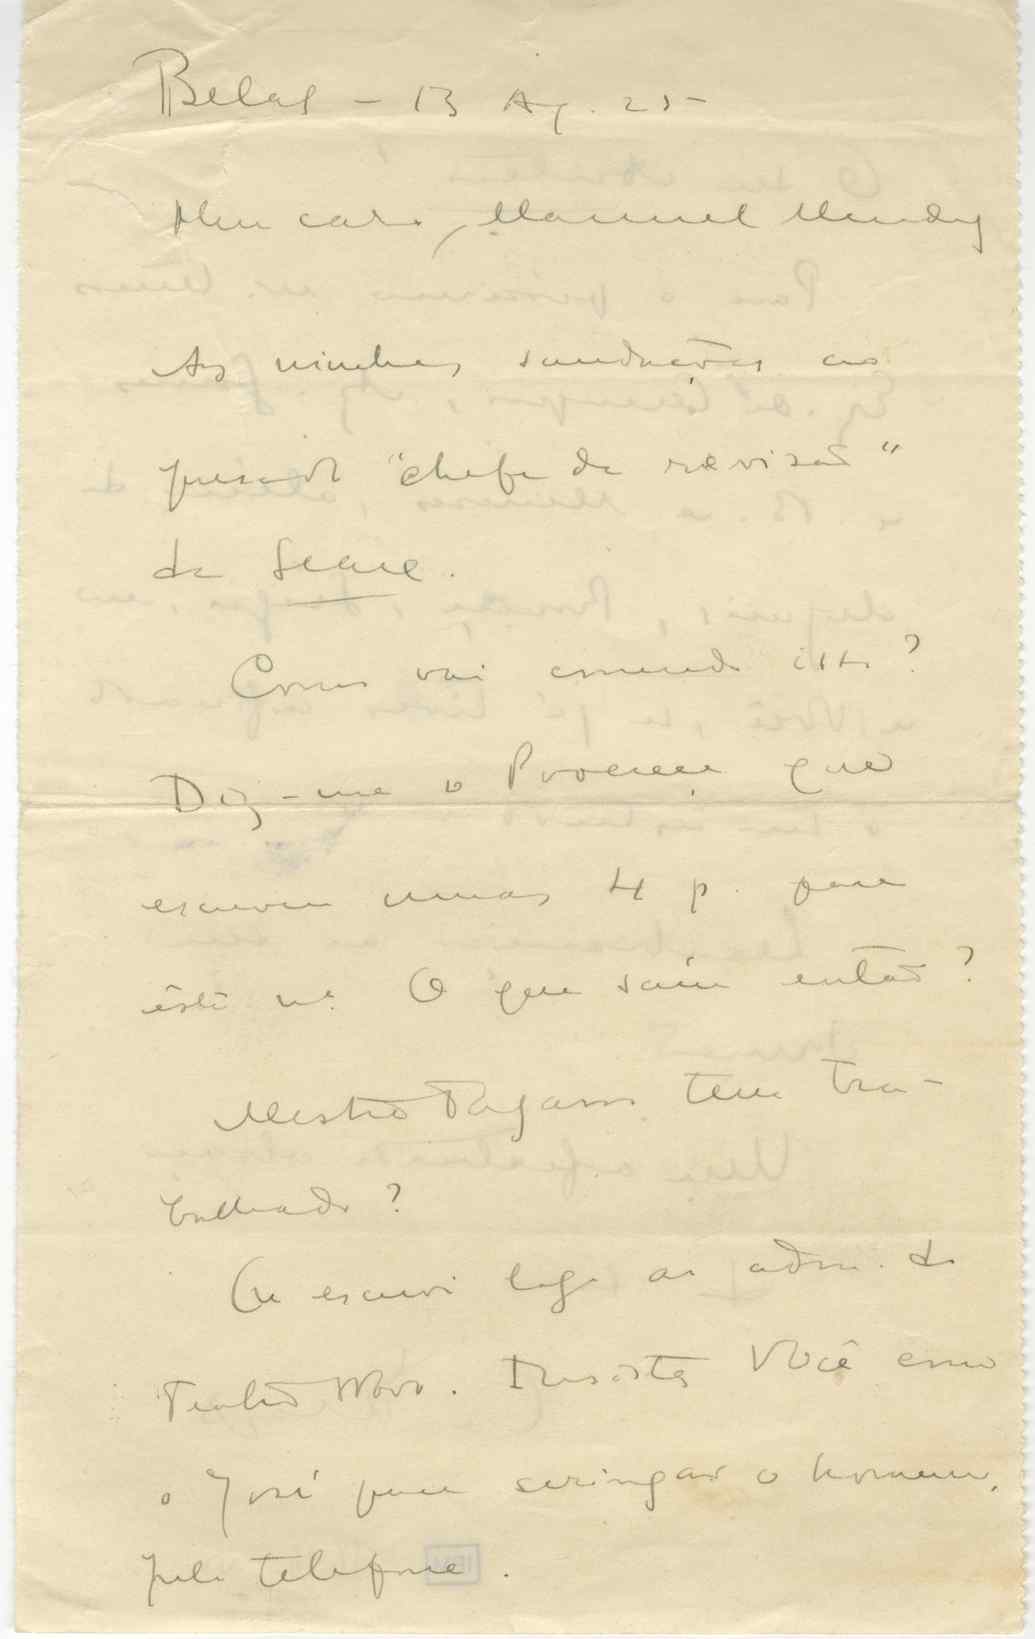 Belas – 13 Ag. 25
Meu caro Manuel Mendes
As minhas saudações ao
presado "chefe da revisão"
da Seara.
Como vai correndo isto?
Diz-me o Proença que
escreveu umas 4 p. para
êste nº. O que saíu então?
Mestre tem tra-
balhado?
Eu escrevi logo ao adm. do
Teatro Novo. Insista Você com
o José para seringar o homem,
pelo telefone.